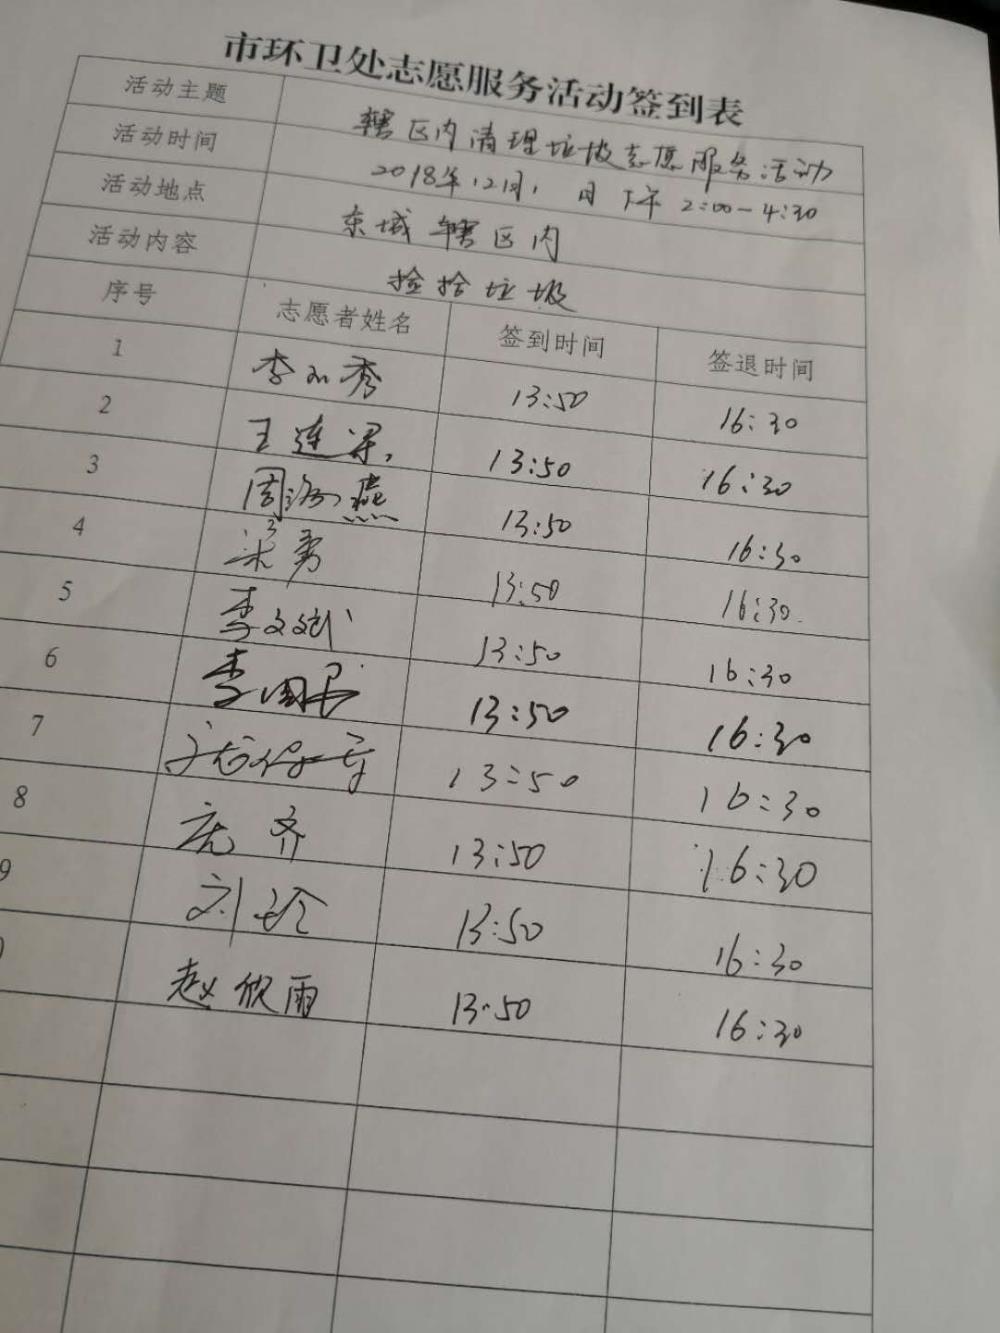 市环卫处志愿服务活动签到表
活动主题 辖区内清理垃圾志愿服务活动
活动时间 2018年12月1日 下午 2:00-4:30
活动地点 东城辖区内
活动内容 捡拾垃圾
序号 志愿者姓名 签到时间 签退时间
1 李 秀 13:50 16:30
2 王连梁 13:50 16:30
3 周 燕 13:50 16:30
4 梁勇 13:50 16:30
5 李文斌 13:50 16:30
6 李国民 13:50 16:30
7 13:50 16:30
8 齐 13:50 16:30
9 刘玲 13:50 16:30
赵欣雨 13:50 16:30